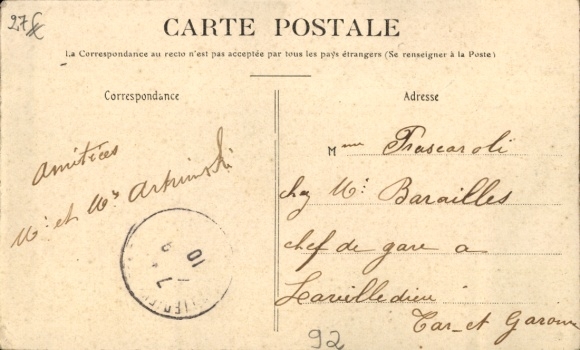 27 €
CARTE POSTALE
La Correspondance au recto n'est pas acceptée par tous les pays étrangers (Se renseigner à la Poste)
Correspondance
Amitiées
Mr et Me
Adresse
Mme Frascaroli
chez Mr Barailles
chef de gare a
Lavilledieu
Tar-et Garonne
92